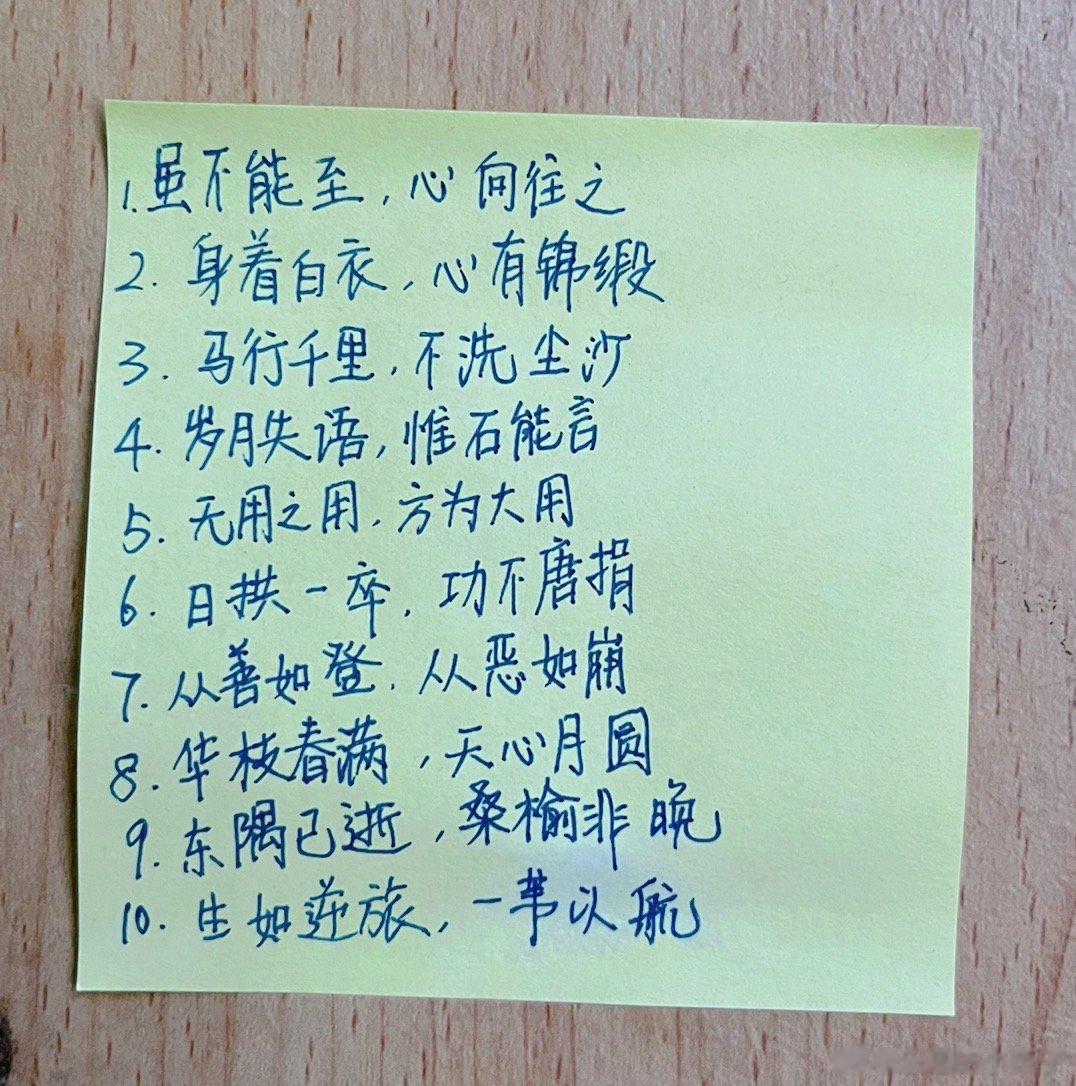 1.虽不能至,心向往之
2.身着白衣,心有锦缎
3.马行千里,不洗尘沙
4.岁月失语,惟石能言
5.无用之用,方为大用
6.日拱一卒,功不唐捐
7.从善如登,从恶如崩
8.华枝春满,天心月圆
9.东隅已逝,桑榆非晚
10.生如逆旅,一苇以航